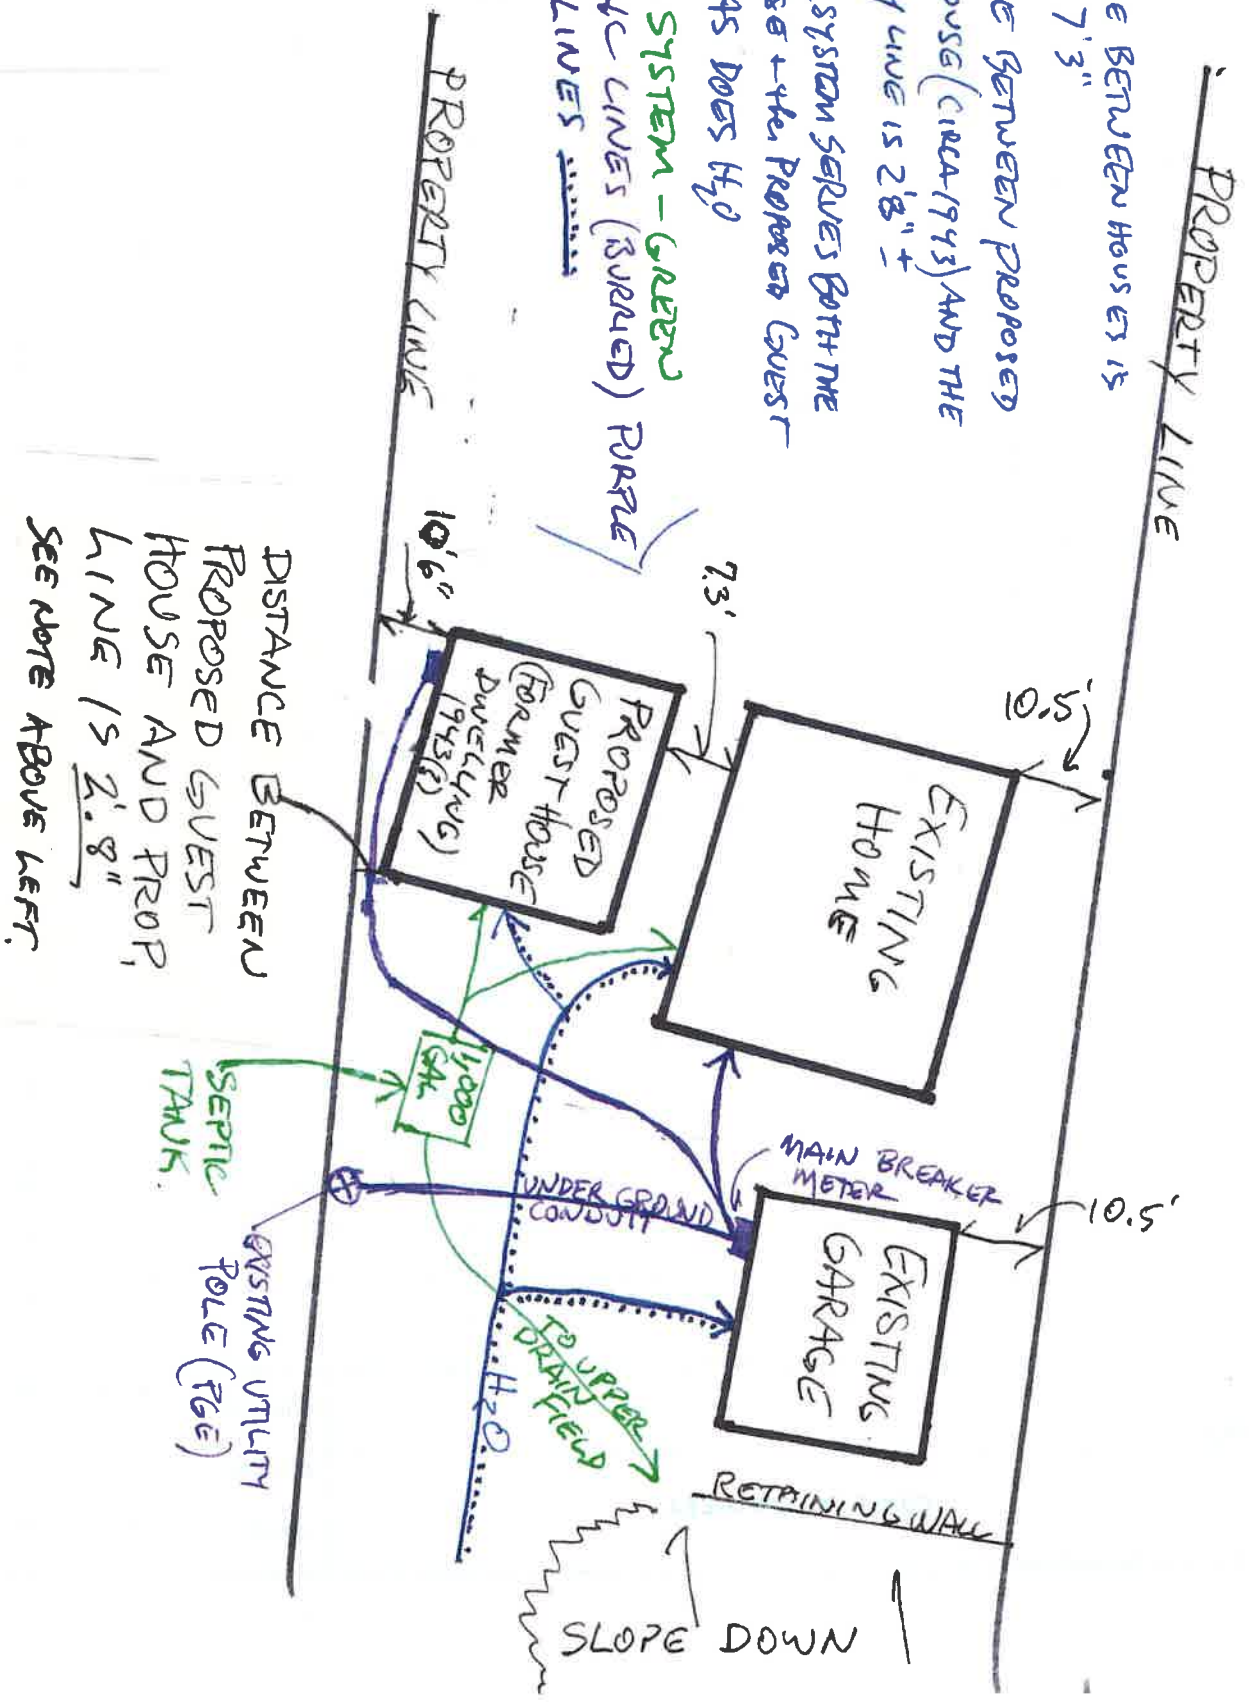 E BETWEEN HOUSES IS
7'3"
E BETWEEN PROPOSED
OUSE (CIRCA-1943) AND THE
Y LINE IS 2'8" ±
SYSTEM SERVES BOTH THE
SE + the PROPOSED GUEST
AS DOES H2O
SYSTEM - GREEN
IC LINES (BURRIED) PURPLE
LINES
PROPERTY LINE
PROPERTY LINE
10.5'
7.3'
10'6"
EXISTING
HOME
PROPOSED
GUEST HOUSE
(FORMER
DWELLING)
1943(?)
DISTANCE BETWEEN
PROPOSED GUEST
HOUSE AND PROP.
LINE IS 2'.8"
SEE NOTE ABOVE LEFT.
MAIN BREAKER
METER
10.5'
EXISTING
GARAGE
UNDER GROUND
CONDUIT
1,000
GAL
SEPTIC
TANK.
EXISTING UTILITY
POLE (PGE)
H2O
TO UPPER
DRAIN
FIELD
RETAINING WALL
SLOPE DOWN